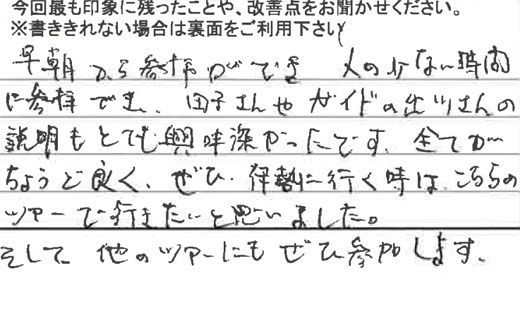 今回最も印象に残ったことや、改善点をお聞かせください。
※書ききれない場合は裏面をご利用下さい
早朝から参拝ができ 人の少ない時間
に参拝でき、田子さんやガイドの出ツさんの
説明もとても興味深かったです。全てが
ちょうど良く、ぜひ伊勢に行く時は、こちらの
ツアーで行きたいと思いました。
そして、他のツアーにもぜひ参加します。